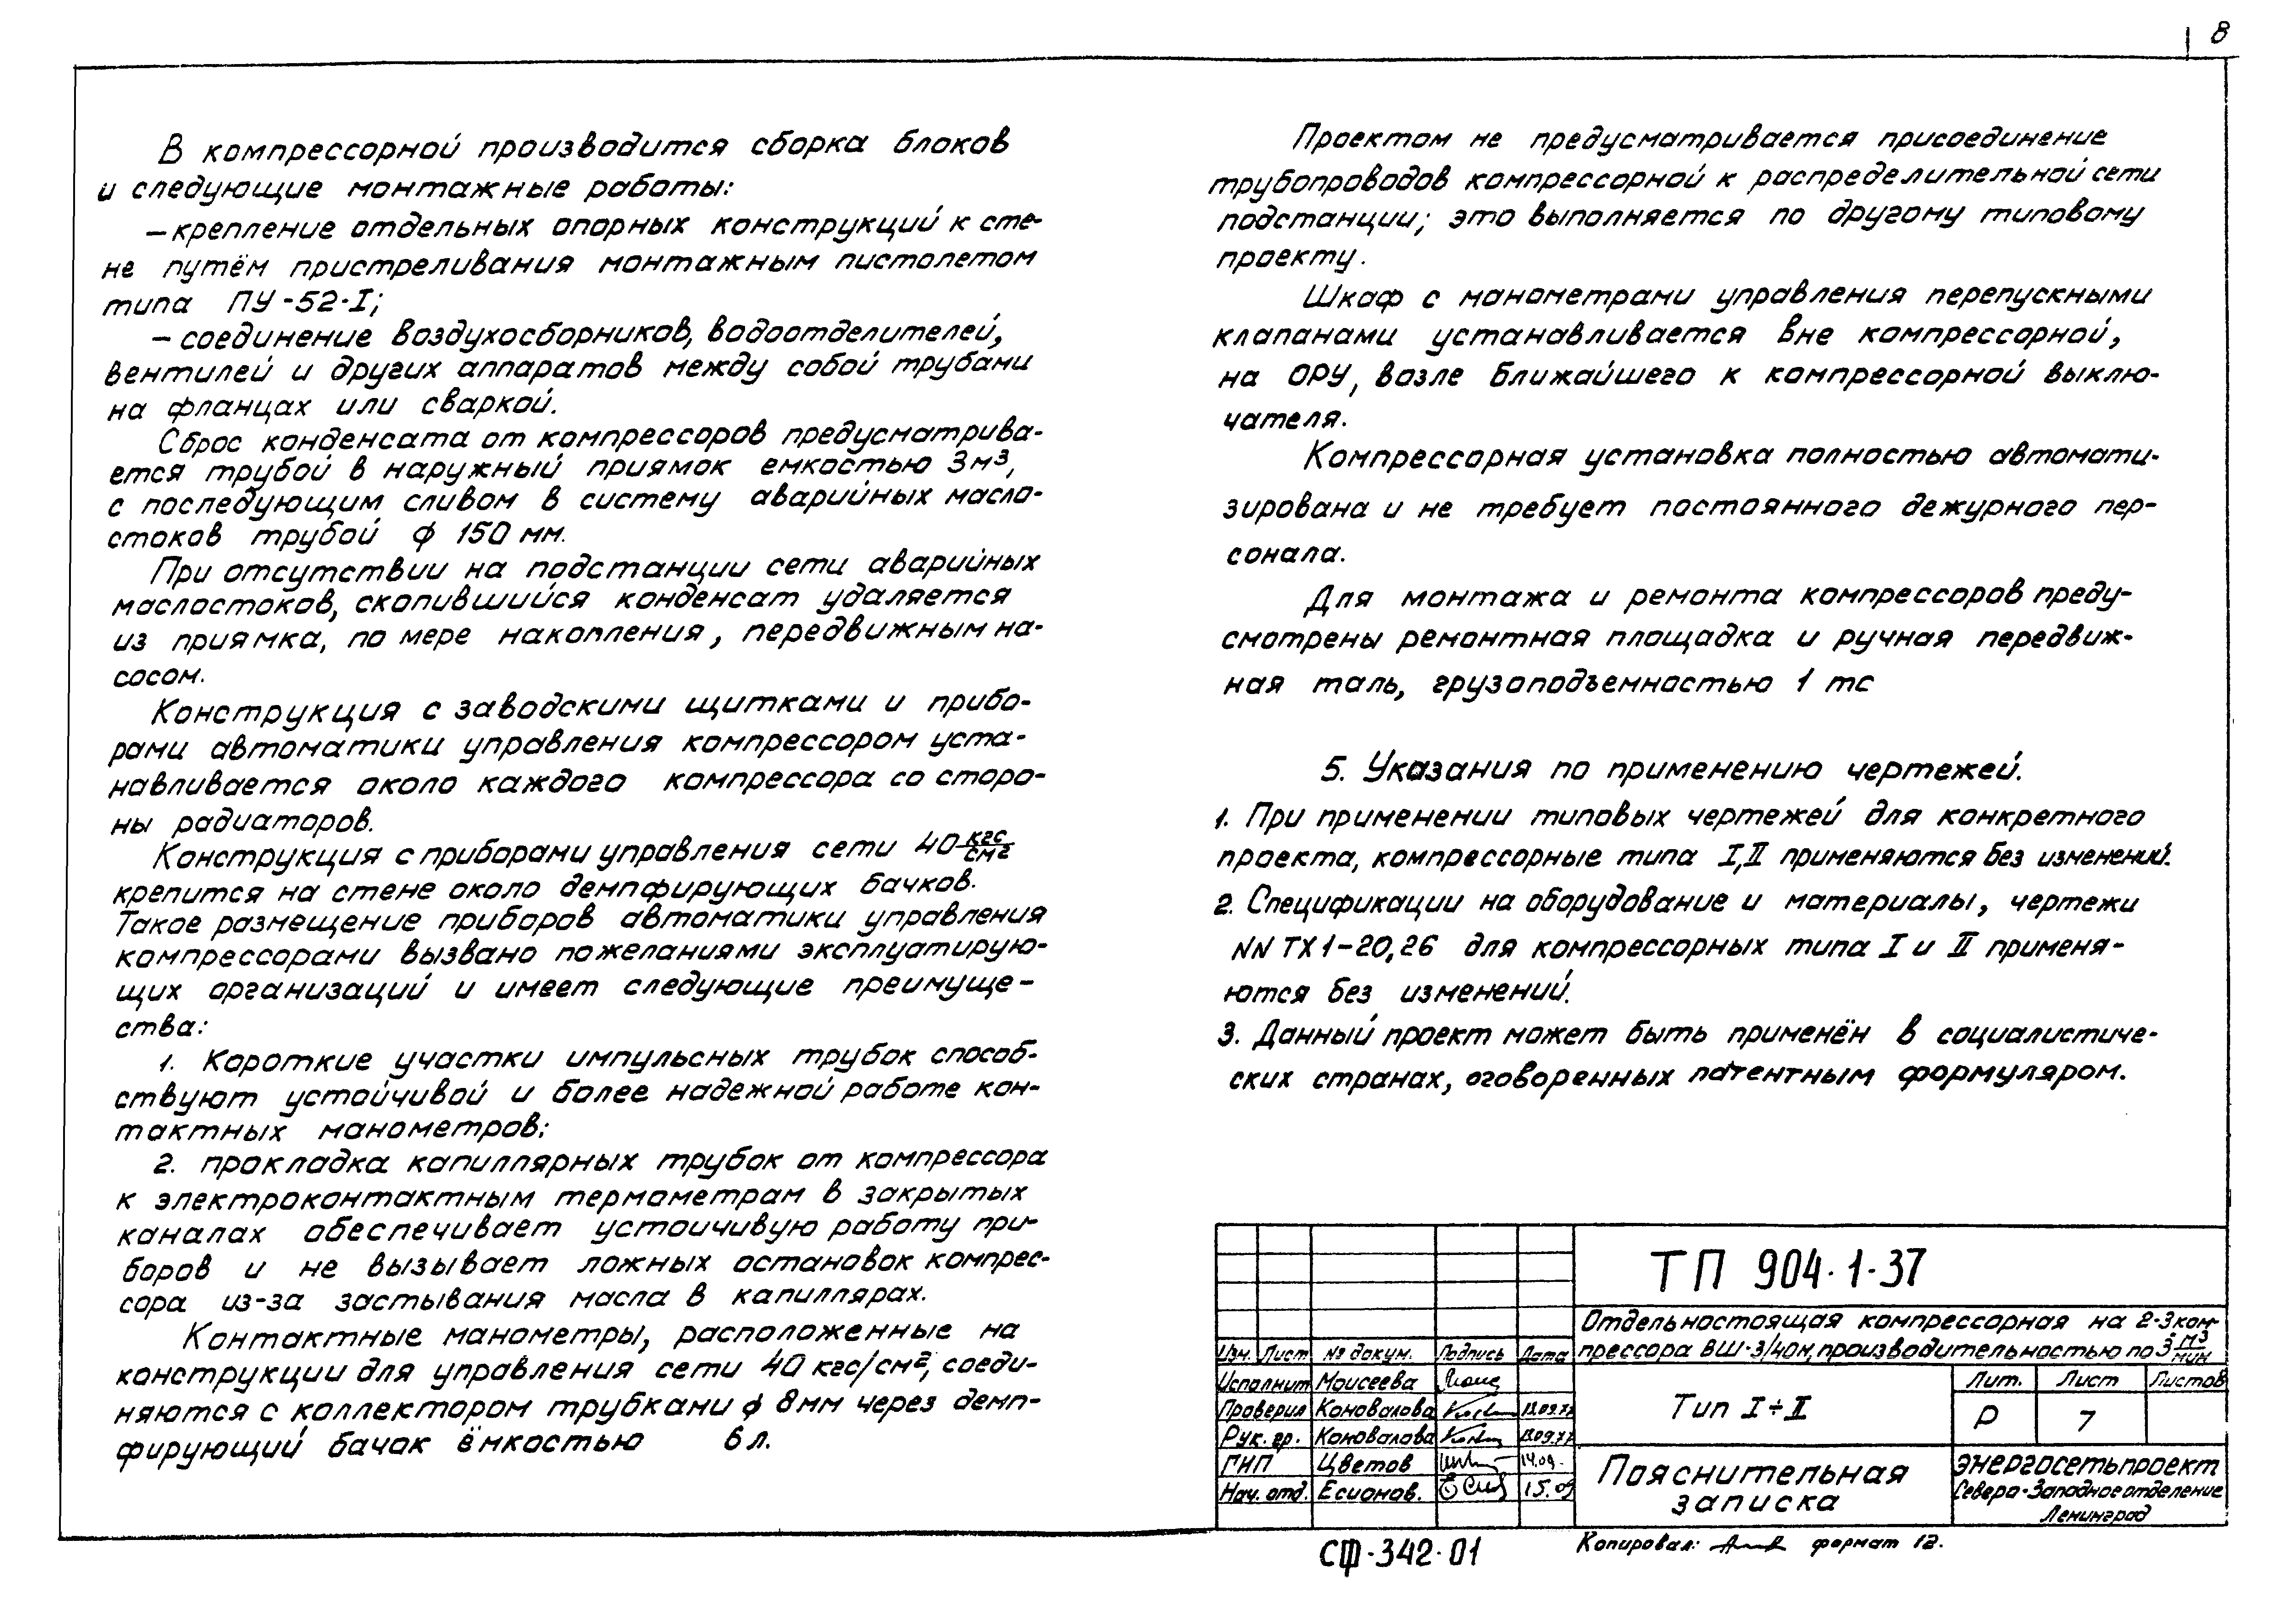 8
В компрессорной производится сборка блоков
и следующие монтажные работы:
– крепление отдельных опорных конструкций к сте-
не путём пристреливания монтажным пистолетом
типа ПУ-52-I;
– соединение воздухосборников, водоотделителей,
вентилей и других аппаратов между собой трубами
на фланцах или сваркой.
Сброс конденсата от компрессоров предусматрива-
ется трубой в наружный приямок емкостью 3м³,
с последующим сливом в систему аварийных масло-
стоков трубой ф 150 мм.
При отсутствии на подстанции сети аварийных
маслостоков, скопившийся конденсат удаляется
из приямка, по мере накопления, передвижным на-
сосом.
Конструкция с заводскими щитками и прибо-
рами автоматики управления компрессором уста-
навливается около каждого компрессора со сторо-
ны радиаторов.
Конструкция с приборами управления сети 40 кгс/см²
крепится на стене около демпфирующих бачков.
Такое размещение приборов автоматики управления
компрессорами вызвано пожеланиями эксплуатирую-
щих организаций и имеет следующие преимуще-
ства:
1. Короткие участки импульсных трубок способ-
ствуют устойчивой и более надежной работе кон-
тактных манометров;
2. прокладка капиллярных трубок от компрессора
к электроконтактным термометрам в закрытых
каналах обеспечивает устоичивую работу при-
боров и не вызывает ложных остановок компрес-
сора из-за застывания масла в капиллярах.
Контактные манометры, расположенные на
конструкции для управления сети 40 кгс/см², соеди-
няются с коллектором трубками ф 8мм через демп-
фирующий бачок ёмкостью 6 л.
Проектом не предусматривается присоединение
трубопроводов компрессорной к распределительной сети
подстанции; это выполняется по другому типовому
проекту.
Шкаф с манометрами управления перепускными
клапанами устанавливается вне компрессорной,
на ОРУ, возле ближайшего к компрессорной выклю-
чателя.
Компрессорная установка полностью автомати-
зирована и не требует постоянного дежурного пер-
сонала.
Для монтажа и ремонта компрессоров преду-
смотрены ремонтная площадка и ручная передвиж-
ная таль, грузоподъемностью 1 тс
5. Указания по применению чертежей.
1. При применении типовых чертежей для конкретного
проекта, компрессорные типа I, II применяются без изменений.
2. Спецификации на оборудование и материалы, чертежи
NN ТХ1-20,26 для компрессорных типа I и II применя-
ются без изменений.
3. Данный проект может быть применён в социалистиче-
ских странах, оговоренных патентным формуляром.
ТП 904-1-37
Отдельностоящая компрессорная на 2-3 ком-
прессора ВШ-3/40м, производительностью по 3 м³/мин
Изм. Лист № докум. Подпись Дата
Исполнит Моисеева
Проверил Коновалова 13.09.77
Рук. гр. Коновалова 13.09.77
ГИП Цветов 14.09.
Нач. отд. Есионов. 15.09
Тип I÷II
Лит. Лист Листов
Р 7
Пояснительная
записка
Энергосетьпроект
Северо-Западное отделение
Ленинград
СФ-342-01
Копировал: формат 12.